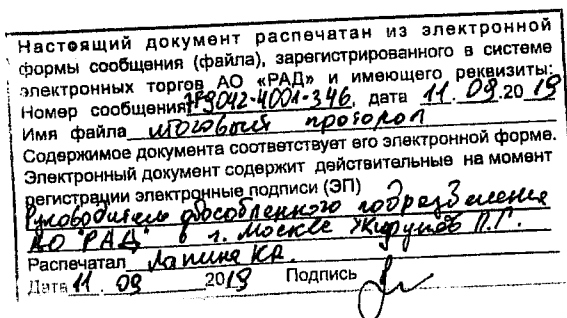 Настоящий документ распечатан из электронной
формы сообщения (файла), зарегистрированного в системе
электронных торгов АО «РАД» и имеющего реквизиты:
Номер сообщения 79042-4001-346, дата 11.09.2019
Имя файла итоговый протокол
Содержимое документа соответствует его электронной форме.
Электронный документ содержит действительные на момент
регистрации электронные подписи (ЭП)
Руководитель обособленного подразделения
АО "РАД" в г. Москве П.Г.
Распечатал Лапина
Дата 11.09 2019 Подпись